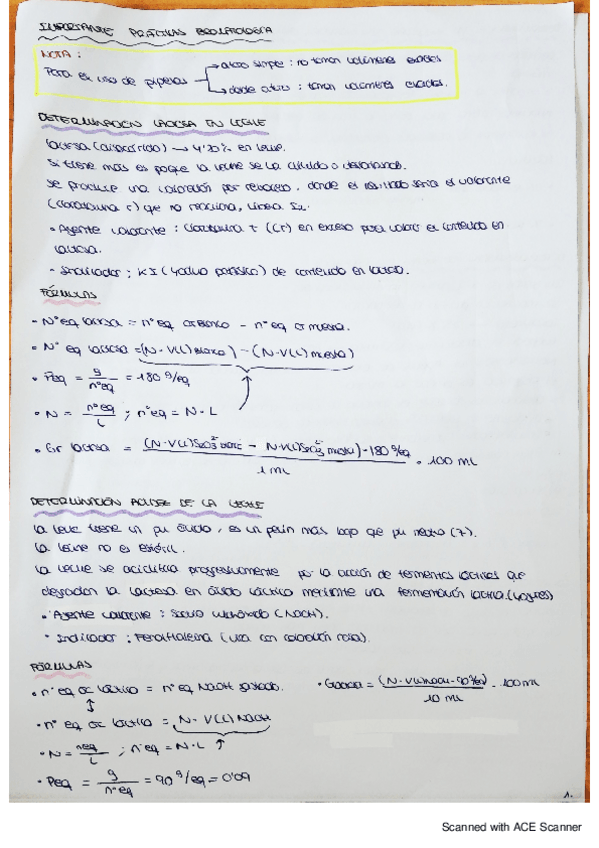 IMPORTANTE PRÁCTICAS BROMATOLOGÍA
NOTA:
Para el uso de pipetas → aforo simple: no toman volúmenes exactos
→ doble aforo: toman volúmenes exactos.
DETERMINACIÓN LACTOSA EN LECHE
lactosa (disacárido) → 4'70% en leche.
Si tiene más es porque la leche se la
se produce una valoración por retroceso, donde el resultado sería el valorante
(cloramina T) que no reacciona,
• Agente valorante: Cloramina T (CT) en exceso para valorar el contenido en
lactosa.
- Indicador: KI (Yoduro potásico) de contenido en lactosa.
FÓRMULAS
- Nº eq lactosa = nº eq CT Blanco - nº eq CT muestra.
• Nº eq lactosa = (N·V(L) Blanco) - (N·V(L) muestra)
• Peq = g / nºeq = 180 g/eq
• N = nºeq / L ; nºeq = N·L
• Gr lactosa = (N·V(L) S2O3²⁻ - N·V(L) S2O3²⁻ muestra)·180 g/eq / 1 mL · 100 mL
DETERMINACIÓN ACIDEZ DE LA LECHE
La leche tiene un pH ácido, es un pelín más bajo que pH neutro (7).
La leche no es estéril.
La leche se acidifica progresivamente por la acción de fermentos lácticos que
degradan la lactosa en ácido láctico mediante una fermentación láctica. (yogures)
• Agente valorante: Sosa (NaOH).
• Indicador: Fenolftaleína (vira con coloración rosa).
FÓRMULAS
• nº eq ac láctico = nº eq NaOH gastado.
• G = (N·V(L) NaOH·90 g/eq) / 10 mL · 100 mL
• nº eq ac láctico = N·V(L) NaOH
• N = neq / L ; nºeq = N·L
• Peq = g / nºeq = 90 g/eq = 0'09
1.
Scanned with ACE Scanner